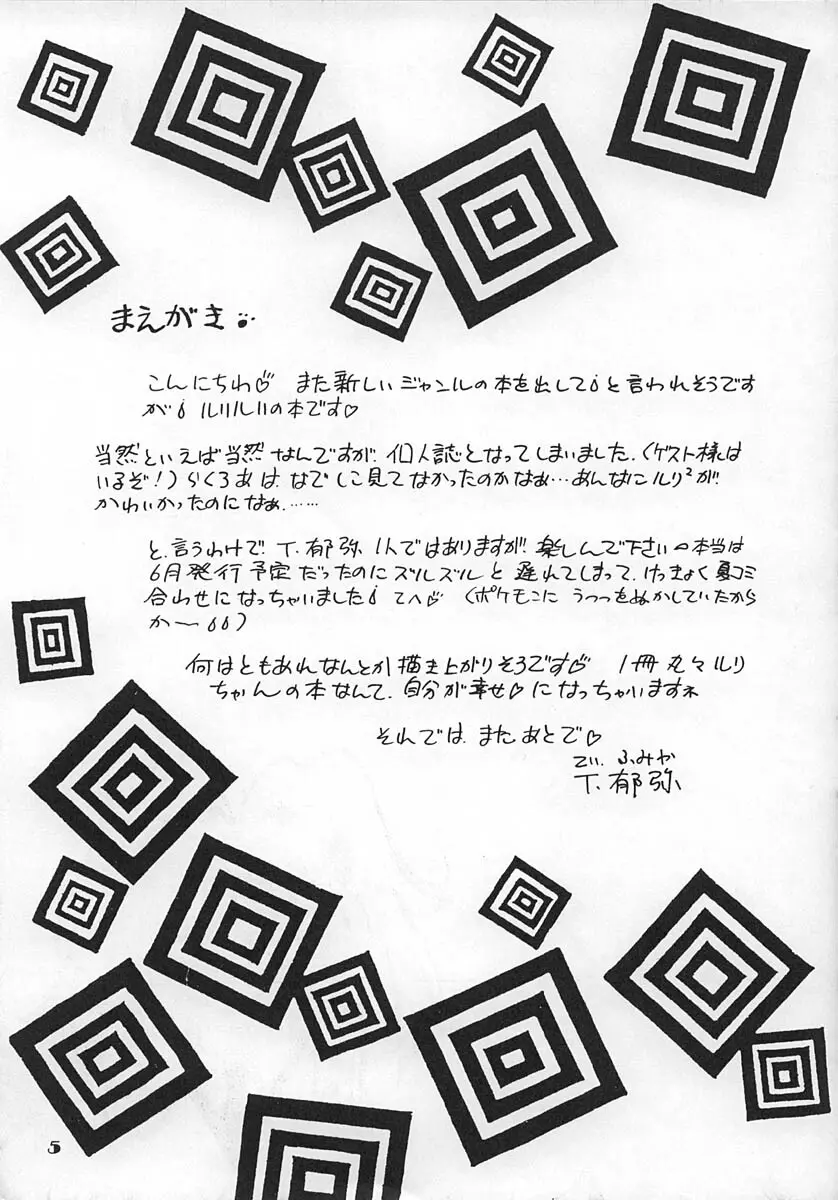 まえがき
こんにちわ♡ また新しいジャンルの本を出して！と言われそうです
が！ ルリルリの本です♡
当然といえば当然なんですが、個人誌となってしまいました。(ゲスト様は
いるぞ！)らくろあは、なでしこ見てなかったのかなぁ…あんなにルリ²が
かわいかったのになぁ……
と、言うわけで、T.郁弥 1人ではありますが、楽しんで下さい 本当は
6月発行予定だったのにズルズルと遅れてしまって、けっきょく夏コミ
合わせになっちゃいました！ てへ♡ (ポケモンに うつつをぬかしていたから
か〜)
何はともあれなんとか描き上がりそうです♡ 1冊丸々ルリ
ちゃんの本なんて、自分が幸せ♡になっちゃいますネ
それでは、またあとで♡
てぃ. ふみや
T.郁弥
5